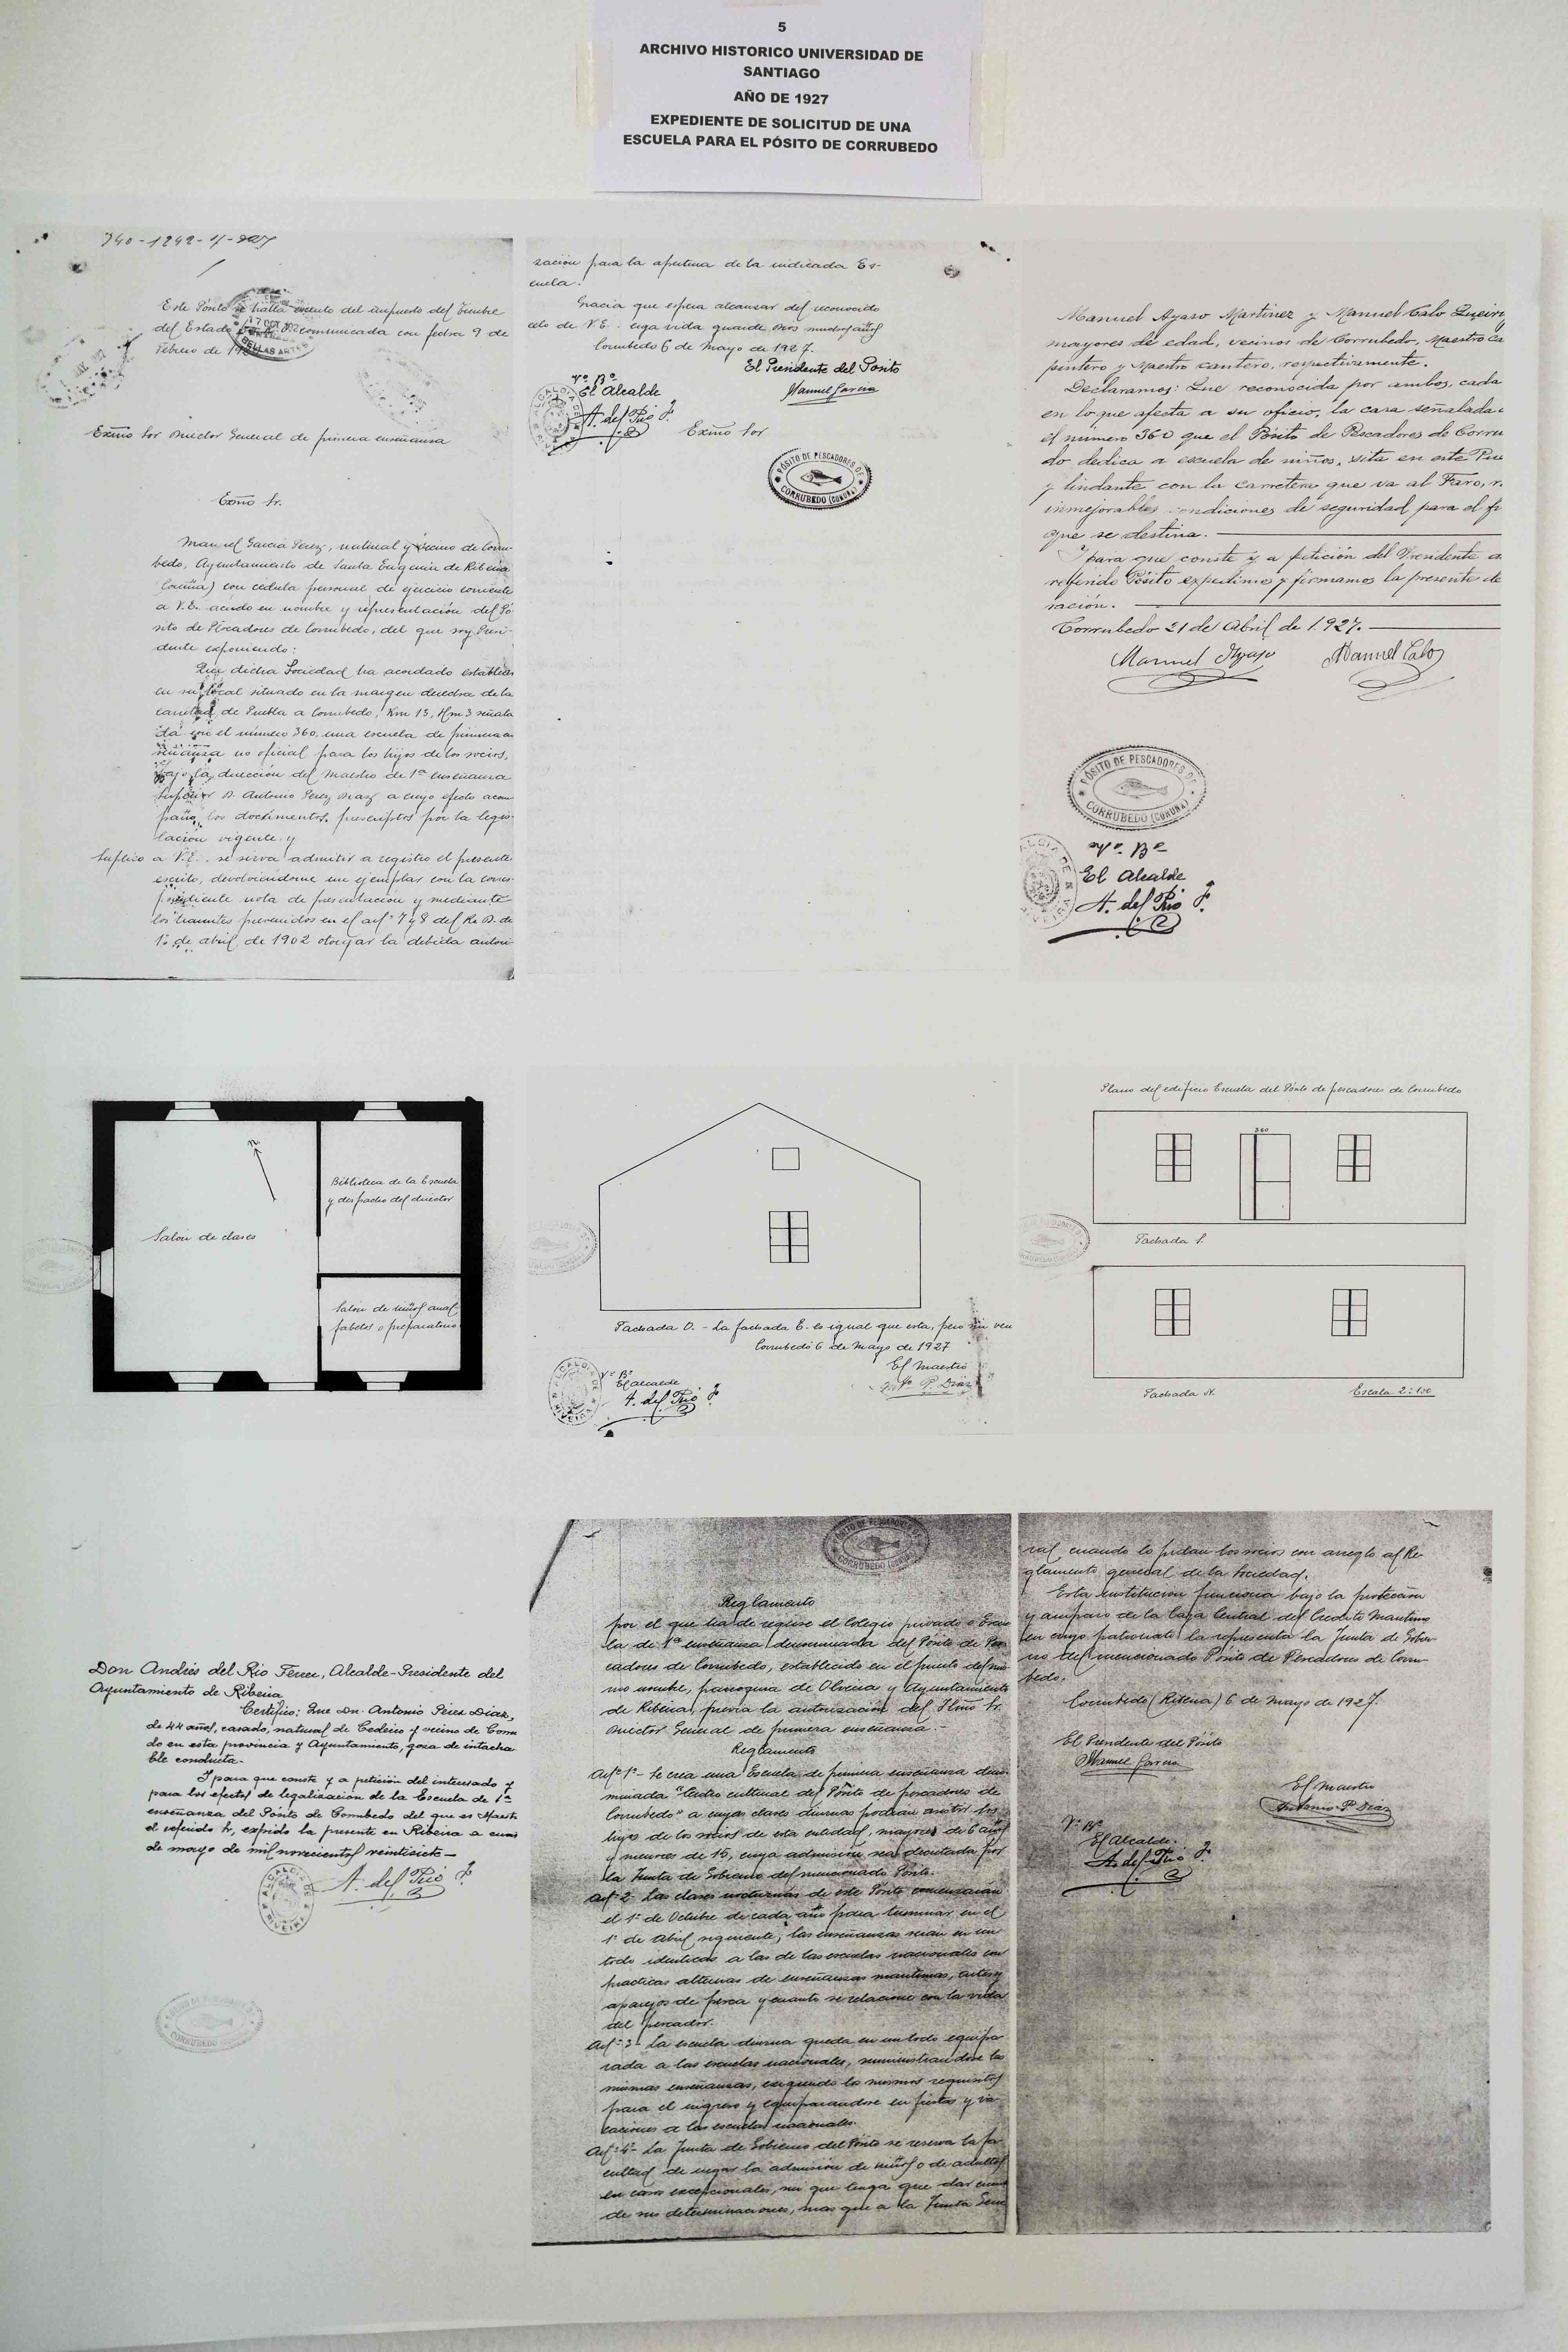 5
ARCHIVO HISTORICO UNIVERSIDAD DE
SANTIAGO
AÑO DE 1927
EXPEDIENTE DE SOLICITUD DE UNA
ESCUELA PARA EL PÓSITO DE CORRUBEDO
Este Pósito se halla exento del impuesto del Timbre
del Estado comunicada con fecha 9 de
Febrero de
17 OCT
BELLAS ARTES
Exmo Sor Director General de primera enseñanza
Exmo Sr.
Manuel García Perez, natural y vecino de Corru-
bedo, Ayuntamiento de Santa Eugenia de Ribeira
(Coruña) con cédula personal de ejercicio corriente
a V.E. acudo en nombre y representación del Pó
sito de Pescadores de Corrubedo, del que soy Presi-
dente exponiendo:
Que dicha Sociedad ha acordado establecer
en su local situado en la margen derecha de la
carretera de Puebla a Corrubedo, Km 13, Hm 3 señala
da con el número 360, una escuela de primera en
señanza no oficial para los hijos de los socios,
bajo la dirección del Maestro de 1ª enseñanza
Superior D. Antonio Perez Diaz a cuyo efecto acom
paño los documentos prescriptos por la legis-
lación vigente y
Suplico a V.E. se sirva admitir a registro el presente
escrito, devolviendome un ejemplar con la corres
pondiente nota de presentación y mediante
los tramites prevenidos en el artº 7 y 8 del R. D. de
1º de abril de 1902 otorgar la debida autori-
zación para la apertura de la indicada Es-
cuela.
Gracia que espera alcanzar del reconocido
celo de V.E. cuya vida guarde Dios muchos años
Corrubedo 6 de Mayo de 1927.
El Presidente del Pósito
Manuel García
Vº Bº
El Alcalde
A. del Río F.
Exmo Sor
PÓSITO DE PESCADORES DE
CORRUBEDO (CORUÑA)
Manuel Ayaso Martinez y Manuel Calo
mayores de edad, vecinos de Corrubedo, Maestro Ca
pintero y Maestro cantero, respectivamente.
Declaramos: Que reconocida por ambos, cada
en lo que afecta a su oficio, la casa señalada c
el número 360 que el Pósito de Pescadores de Corru
do dedica a escuela de niños, sita en este Pue
y lindante con la carretera que va al Faro, r.
inmejorables condiciones de seguridad para el fi
que se destina.
Y para que conste y a petición del Presidente d
referido Pósito expedimos y firmamos la presente de
ración.
Corrubedo 21 de Abril de 1.927.
Manuel Ayaso
Manuel Calo
PÓSITO DE PESCADORES DE
CORRUBEDO (CORUÑA)
Vº Bº
El Alcalde
A. del Río F.
N
Salón de clases
Biblioteca de la Escuela
y despacho del director
Salón de niños anal-
fabetos o preparatorio
Fachada O. - La fachada E. es igual que esta, pero sin ven
Corrubedo 6 de Mayo de 1927
El Maestro
Antº P. Diaz
Vº Bº
El alcalde
A. del Río F.
Plano del edificio Escuela del Pósito de pescadores de Corrubedo
360
Fachada S.
Fachada N.
Escala 2:100
Don Andrés del Río Ferrer, Alcalde-Presidente del
Ayuntamiento de Ribeira
Certifico: Que Dn. Antonio Pérez Diaz,
de 44 años, casado, natural de Cedeira y vecino de Corru
do en esta provincia y Ayuntamiento, goza de intacha
ble conducta.
Y para que conste y a petición del interesado y
para los efectos de legalización de la Escuela de 1ª
enseñanza del Pósito de Corrubedo del que es Maest
el referido Sr, expido la presente en Ribeira a
de mayo de mil novecientos veintisiete
A. del Río F.
PÓSITO DE PESCADORES DE
CORRUBEDO
Reglamento
por el que ha de regirse el Colegio privado o Escue
la de 1ª enseñanza denominada del Pósito de Pes
cadores de Corrubedo, establecido en el punto del mis
mo nombre, parroquia de Olveira y Ayuntamiento
de Ribeira, previa la autorización del Iltmo Sr.
Director General de primera enseñanza.-
Reglamento
Artº 1º- Se crea una Escuela de primera enseñanza deno
minada "Centro cultural del Pósito de pescadores de
Corrubedo" a cuyas clases diurnas podrán asistir los
hijos de los socios de esta entidad, mayores de 6 años
y menores de 15, cuya admisión sea decretada por
la Junta de Gobierno del mencionado Pósito.
Artº 2- Las clases nocturnas de este Pósito comenzarán
el 1º de Octubre de cada año para terminar en el
1º de Abril siguiente; las enseñanzas serán en un
todo identicas a las de las escuelas nacionales con
practicas alternas de enseñanzas maritimas, artes y
aparejos de pesca y cuanto se relacione con la vida
del pescador.
Artº 3- La escuela diurna queda en un todo equipa
rada a las escuelas nacionales, suministrandose las
mismas enseñanzas, exigiendo los mismos requisitos
para el ingreso y equiparandose en fiestas y va-
caciones a las escuelas nacionales.
Artº 4º- La Junta de Gobierno del Pósito se reserva la fa-
cultad de negar la admisión de niños o de adultos
en casos excepcionales, sin que tenga que dar cuen
de sus determinaciones, mas que a la Junta Gene
ral cuando lo pidan los socios con arreglo al Re-
glamento general de la Sociedad.
Esta institución funciona bajo la protección
y amparo de la Caja Central del Credito Maritimo
en cuyo patronato la representa la Junta de Gobier-
no del mencionado Pósito de Pescadores de Corru-
bedo.
Corrubedo (Ribeira) 6 de Mayo de 1927.
El Presidente del Pósito
Manuel García
El Maestro
Antonio P. Diaz
Vº Bº
El Alcalde.
A. del Río F.